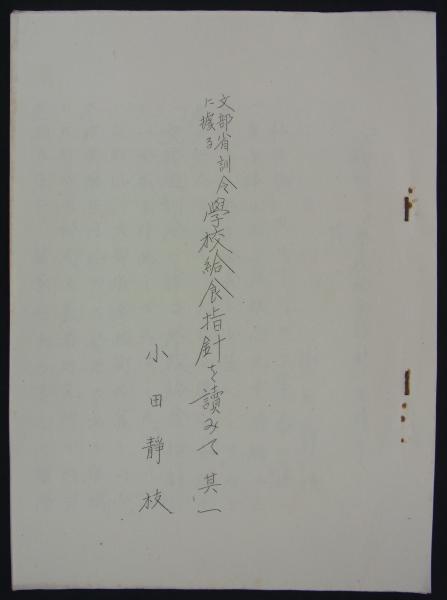 文部省訓令
に據る
學校給食指針を讀みて 其一
小田靜枝